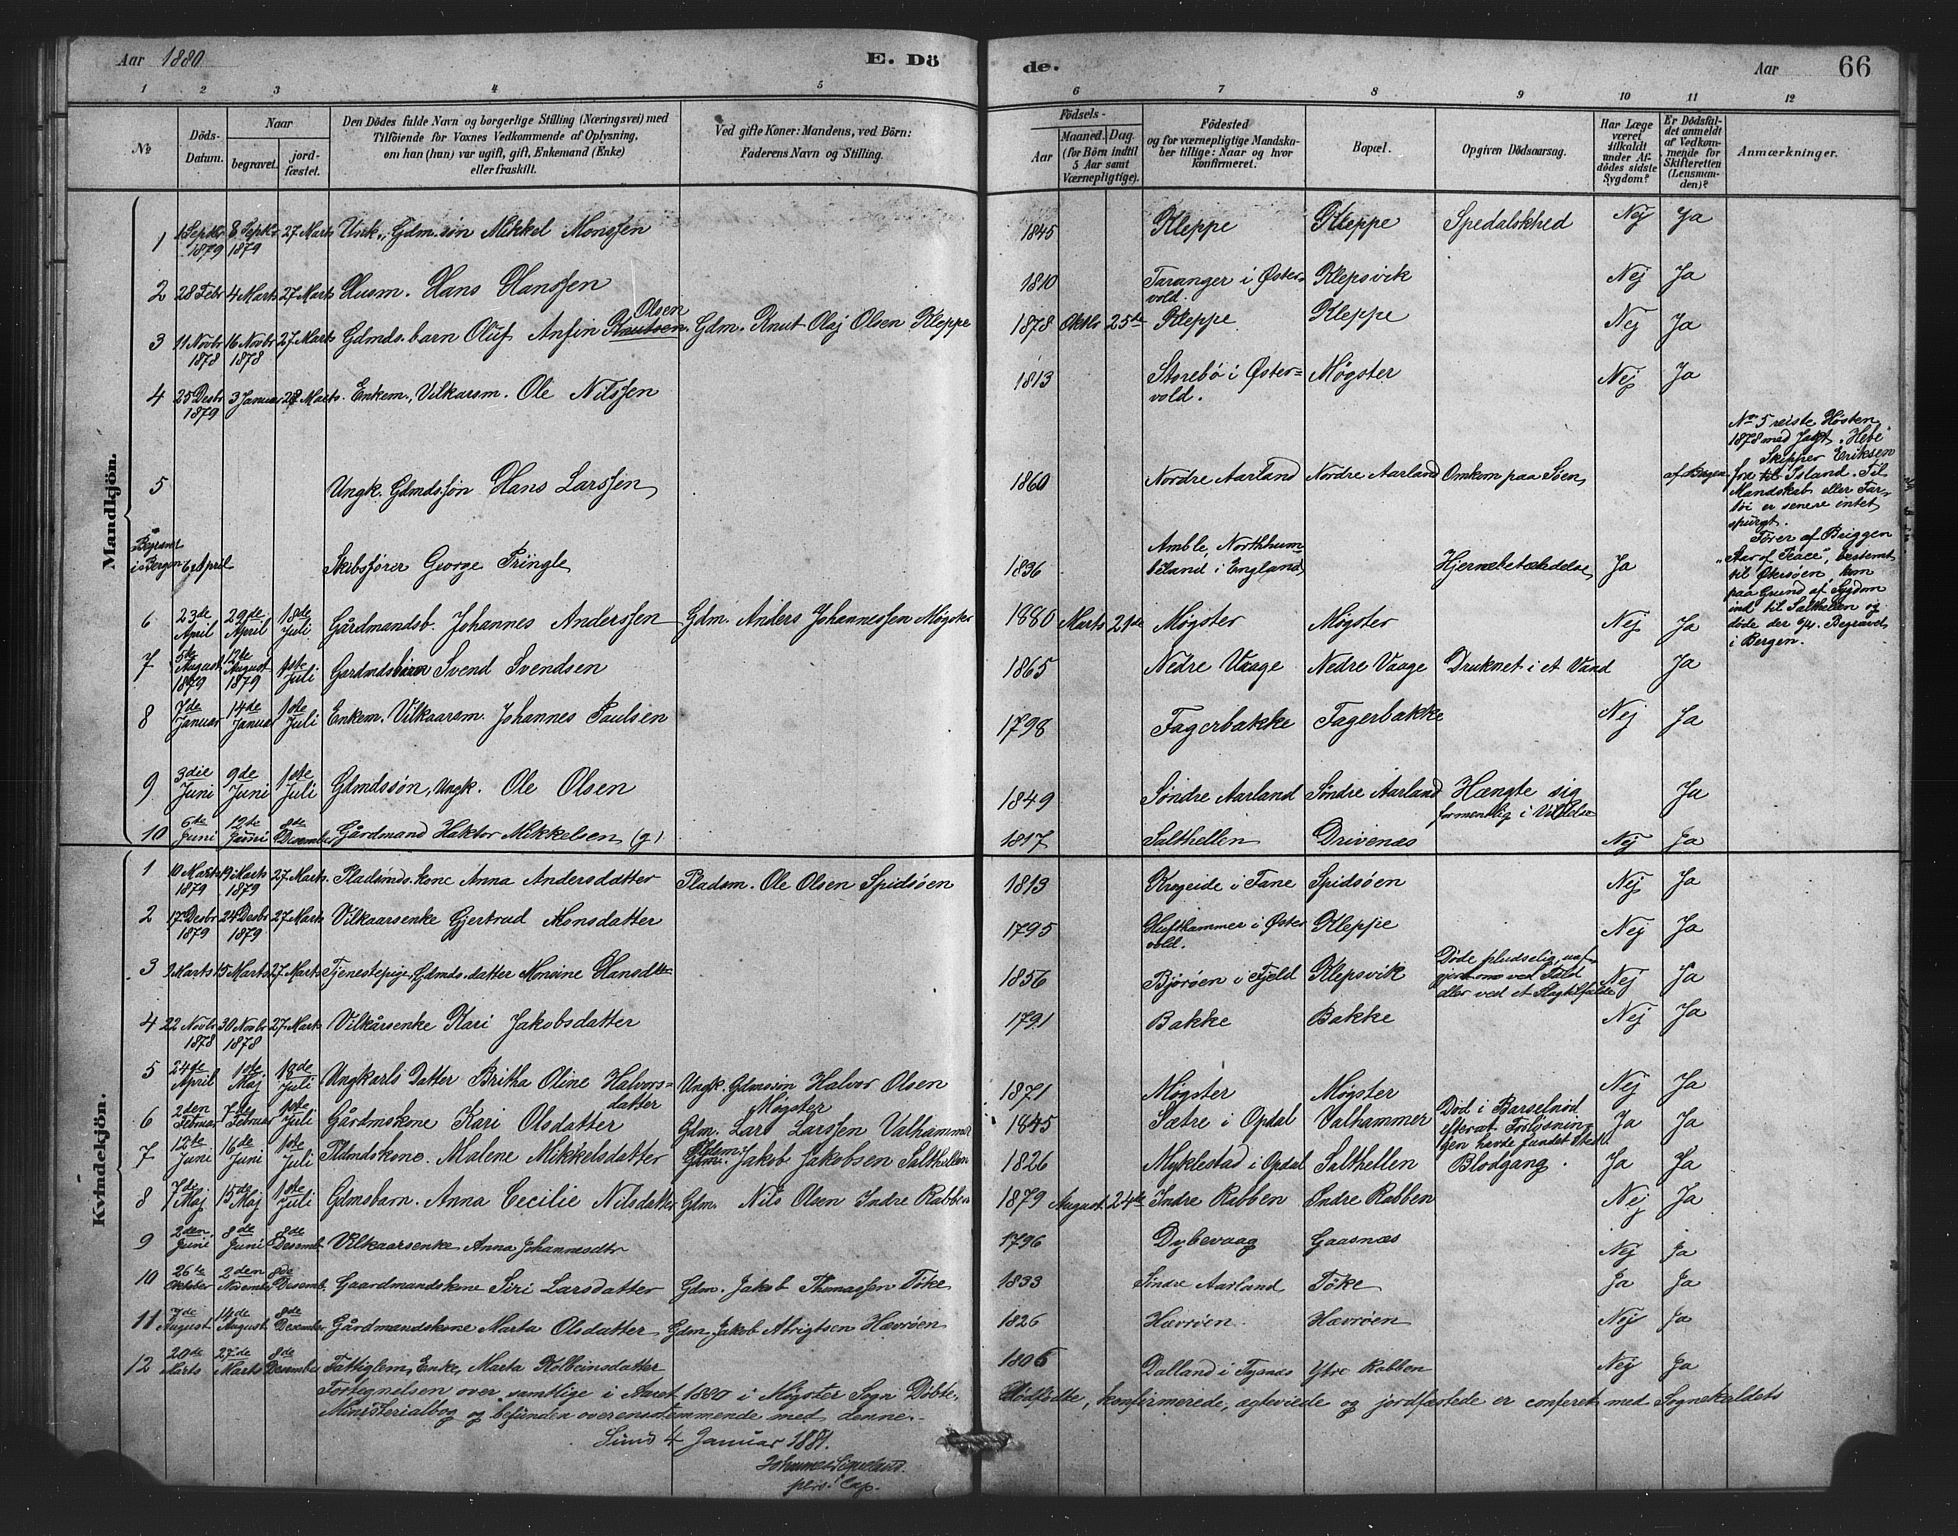 Aar 1880 E. Dö de. Aar 66
1 2 3 4 5 6 7 8 9 10 11 12
No Döds-Datum. Naar begravet. jordfæstet. Den Dödes fulde Navn og borgerlige Stilling (Næringsvei) med Tilföiende for Voxnes Vedkommende af Oplysning, om han (hun) var ugift, gift, Enkemand (Enke) eller fraskilt. Ved gifte Koner: Mandens, ved Börn: Faderens Navn og Stilling. Födsels- Aar Maaned. Dag. (for Börn indtil 5 Aar samt Værnepligtige). Födested og for værnepligtige Mandskaber tillige: Naar og hvor konfirmeret. Bopæl. Opgiven Dödsaarsag. Har Læge været tilkaldt under Afdödes sidste Sygdom? Er Dödsfaldet anmeldt af Vedkommende for Skifteretten (Lensmanden)? Anmærkninger.
Mandkjön.
1 Septbr 1879 8 Septbr 1879 27 Marts Gdm.søn Mikkel Monssen 1845 Kleppe Kleppe Spedalskhed Nej Ja
2 28 Febr 4 Marts 27 Marts Husm. Hans Hanssen 1810 Taranger i Østervold. Klepsvik Nej Ja
3 11 Novbr 1878 16 Novbr 1878 27 Marts Gdmds.barn Oluf Anfin Knutsen Olsen Gdm. Knut Olaj Olsen Kleppe 1878 Oktbr 25de Kleppe Kleppe Nej Ja
4 25 Desbr 1879 3 Januar 28 Marts. Enkem., Vilkaarsm. Ole Nilssen 1813 Storebö i Østervold. Møgster Nej Ja
5 Ungk. Gdmdssøn Hans Larssen 1860 Nordre Aarland Nordre Aarland Omkom paa Søen
No 5 reiste Høsten
1878 med Jakt "Hebe"
Skipper Eriksen
af Bergen
til Island. Til
Mandskab eller Fartøi er senere intet
spurgt.
Begravet i Bergen 6 April Skibsfører George Pringle 1836 Amble, Northhumberland i England Hjernebetændelse Ja
Fører af Briggen
bestemt
til Østersøen, kom
paa Grund af Sygdom
ind til Salthellen og
døde der 6/4. Begravet
i Bergen.
6 23de April 29de April 18de Juli Gårdmandsb. Johannes Anderssen Gdm. Anders Johannessen Møgster 1880 Marts 21de Møgster Møgster Nej Ja
7 5te August 1879 12te August 1879 1ste Juli Gardmdsbarn Svend Svendsen 1865 Nedre Vaage Nedre Vaage Druknet i et Vand Ja
8 7de Januar 14de Januar 1ste Juli Enkem. Vilkaarsm. Johannes Paulsen 1798 Fagerbakke Fagerbakke Nej Ja
9 3die Juni 9de Juni 1ste Juli Gdmdssön, Ungk. Ole Olsen 1849 Søndre Aarland Søndre Aarland Hængte sig formentlig i Vildelse Ja
10 6te Juni 12te Juni 8de Desember Gårdmand Haktor Mikkelsen (g) 1817 Salthellen Drivenæs Nej Ja
Kvindekjön.
1 10 Marts 1879 19 Marts 1879 27 Marts Pladsmds.kone Anna Andersdatter Pladsm. Ole Olsen Spidsøen 1813 Krogeide i Fane Spidsøen Nej Ja
2 17 Desbr 1879 24 Desbr 1879 27 Marts Vilkaarsenke Gjertrud Monsdatter 1795 Hufthammer i Østervold. Kleppe Nej Ja
3 9 Marts 15 Marts 27 Marts Tjenestepige, Gdmds.datter Monsine Hansdtr 1856 Bjørøen i Fjeld Klepsvik Døde pludselig, uafgjort om ved Fald eller ved et Slagtilfælde Nej Ja
4 22 Novbr 1878 30 Novbr 1878 27 Marts Vilkårsenke Kari Jakobsdatter 1791 Bakke Bakke Nej Ja
5 24de April 1ste Maj 18de Juli Ungkarls Datter Britha Oline Halvorsdatter Ungk. Gdmssøn Halvor Olsen Møgster 1871 Møgster Møgster Nej Ja
6 2den Februar 7de Februar 1ste Juli Gårdmskone Kari Olsdatter Gdm. Lars Larssen Valhammer 1845 Sætre i Opdal Valhammer Død i Barselnød efterat Forløsningen havde fundet Sted Ja Ja
7 12te Juni 16de Juni 1ste Juli Pldmdskone. Malene Mikkelsdatter Pldm. Jakob Jakobsen Salthellen 1826 Myklestad i Opdal Salthellen Blodgang. Ja Ja
8 7de Maj 15de Maj 1ste Juli Gdmsbarn. Anna Cecilie Nilsdatter Gdm. Nils Olsen Indre Rabben 1879 August 24de Indre Rabben Indre Rabben Nej Ja
9 2den Juni 8de Juni 8de Desemb. Vilkaarsenke Anna Johannesdtr 1796 Dybevaag Gaasnæs Nej Ja
10 26te Oktober 2den November 8de Desemb. Gaardmandskone Siri Larsdatter Gdm. Jakob Thomassen Töke 1833 Søndre Aarland Töke Ja Ja
11 7de August 14de August 8de Desember Gårdmandskone Marta Olsdatter Gdm. Jakob Hævrøen 1826 Hævrøen Hævrøen Nej Ja
12 20de Marts 27de Marts 8de Desember Fattiglem, Enke, Marta Kolbeinsdatter 1806 Dalland i Tysnæs Ytre Rabben Nej Ja
Fortegnelsen over samtlige i Aaret 1880 i Møgster Sogn Døbte, Dødfødte, konfirmerede, egteviede og jordfæstede er conferet med Sognekaldets
Ministerialbog og befunden overensstemmende med denne.
Sund 4 Januar 1881.
pers. Cap.